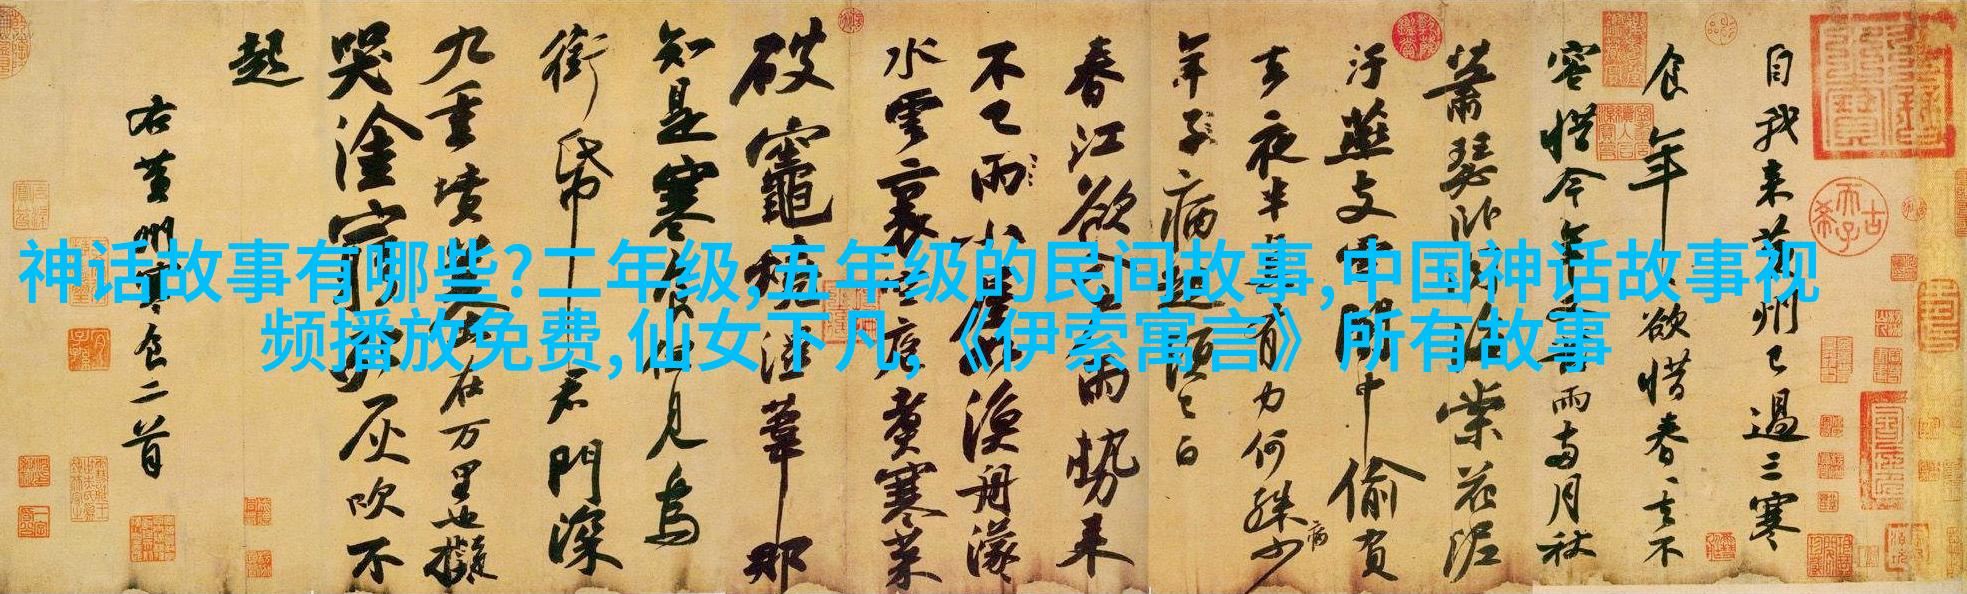 神话故事有哪些?二年级,五年级的民间故事,中国神话故事视
频播放免费,仙女下凡,《伊索寓言》所有故事
自我来黄州已過三寒
食年〻欲惜春〻去不
容惜今年又苦雨兩月秋
蕭瑟卧聞海棠花泥
汙燕支雪闇中偷負
去夜半真有力何殊少
病
年子病起須已白
春江欲入户雨勢来
不已雨小屋如漁舟濛〻
水雲裏空庖煮寒菜
破竈燒濕葦那
知是寒食但見烏
銜帋君門深
九重墳墓在万里也擬
哭塗窮死灰吹不
起
右黄州寒食二首